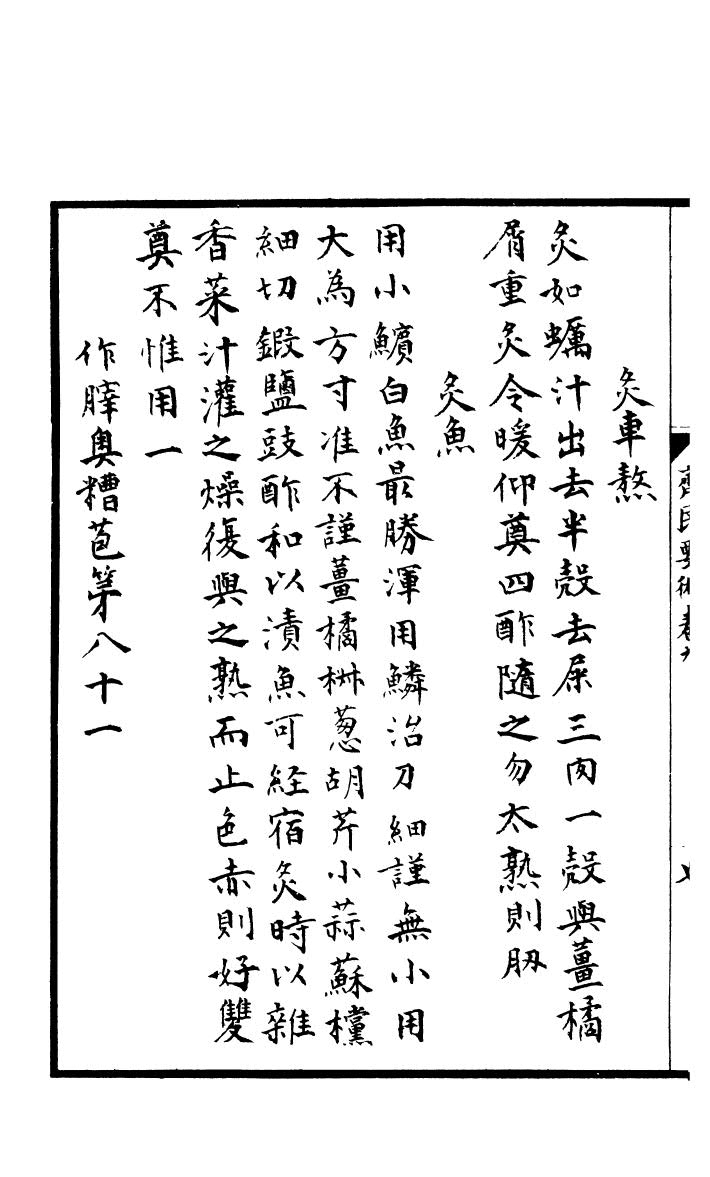 炙車熬
炙如蠣汁出去半殼去屎三肉一殼與薑橘
屑重炙令暖仰奠四酢隨之勿太熟則肕
炙魚
用小鱝白魚最勝渾用鱗治刀細謹無小用
大為方寸准不謹薑橘椒葱胡芹小蒜蘇欓
細切鍛鹽豉酢和以漬魚可経宿炙時以雜
香菜汁灌之燥復與之熟而止色赤則好雙
奠不惟用一
作䏽奥糟苞第八十一
齊民要術卷九